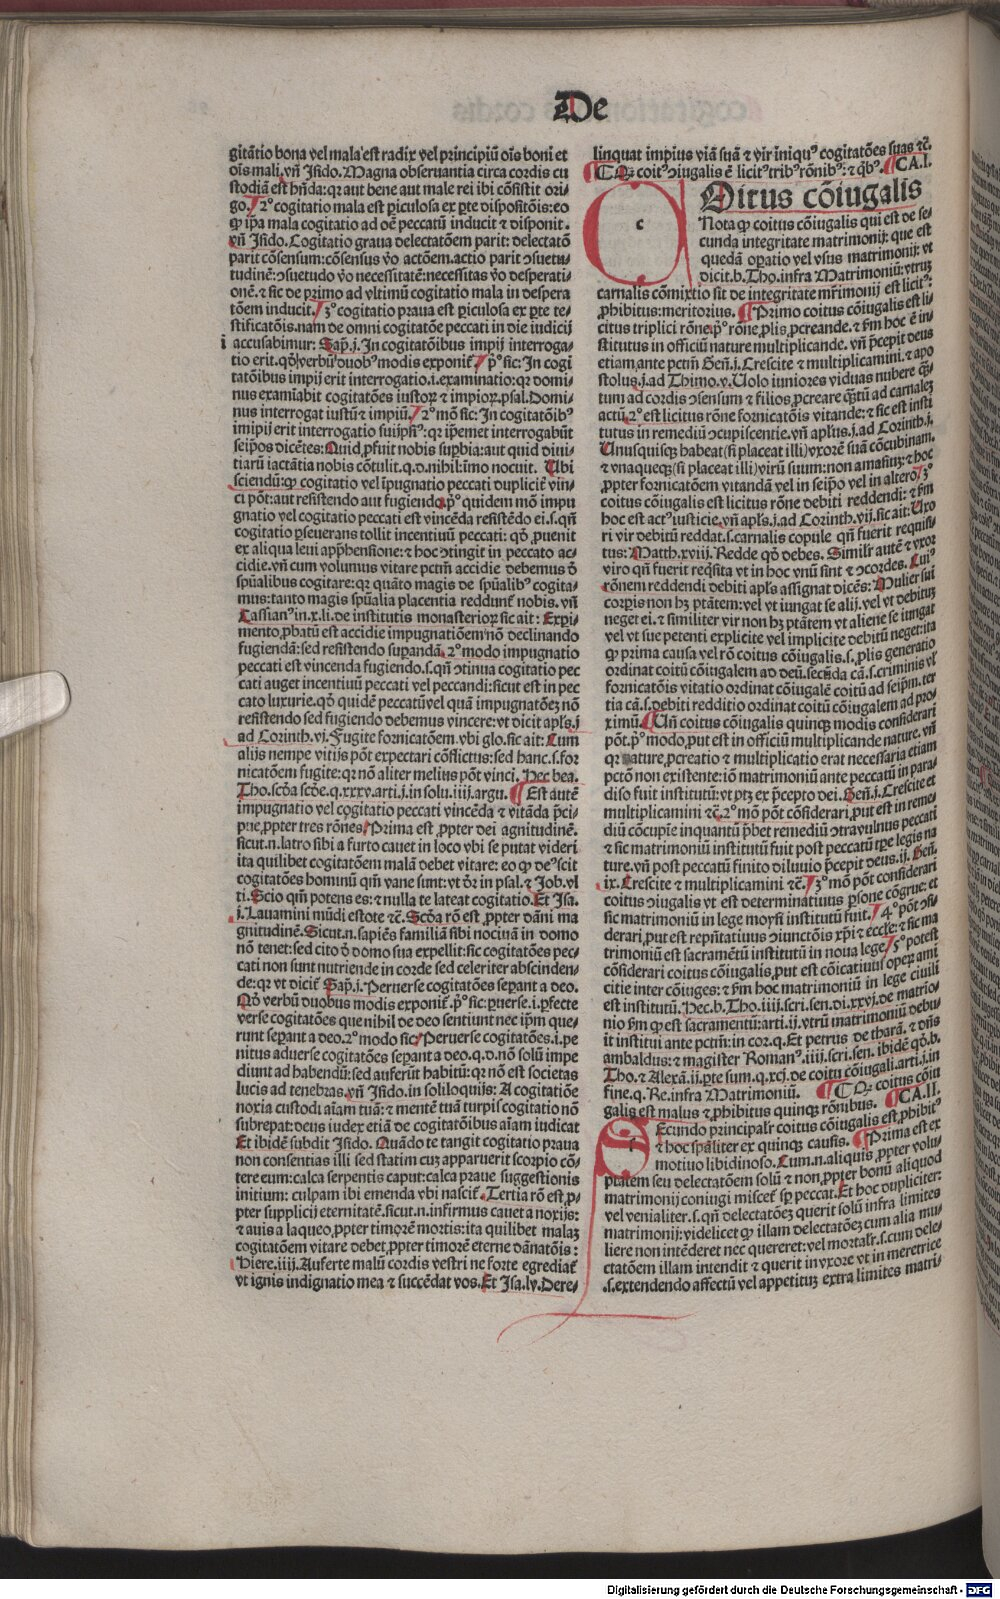 De
gitãtio bona vel mala est radix vel principiũ oĩs boni et
oĩs mali. vñ Isido. Magna obseruantia circa cordis cu
stodiã est hñda: qꝛ aut bene aut male rei ibi cõsistit ori
go. 2º cogitatio mala est ꝑiculosa ex ꝑte dispositõis: eo
ꝙ ip̃a mala cogitatio ad oẽ peccatũ inducit ⁊ disponit.
vñ Isido. Cogitatio graua delectatõem parit: delectatõ
parit cõsensum: cõsensus ṽo actõem. actio parit ↄsuetu-
tudinẽ: ↄsuetudo ṽo necessitatẽ: necessitas ṽo desperati-
onẽ. ⁊ sic de primo ad vltimũ cogitatio mala in despera
tõem inducit. 3º cogitatio praua est ꝑiculosa ex ꝑte te-
stificatõis. nam de omni cogitatõe peccati in die iudicij
i accusabimur: Sap̃. j. In cogitatõibus impij interroga-
tio erit. qð verbũ duobꝰ modis exponit᷑. pº sic: In cogi
tatõibus impij erit interrogatio .i. examinatio: qꝛ domi-
nus examĩabit cogitatões iustoꝝ ⁊ impioꝝ. psal. Domi-
nus interrogat iustũ ⁊ impiũ. 2º mõ sic: In cogitatõibꝰ
impij erit interrogatio suĩipsiꝰ: qꝛ ip̃emet interrogabũt
seip̃os dicẽtes: Quid ꝓfuit nobis suꝑbia: aut quid diui-
tiarũ iactãtia nobis cõtulit. q. d. nihil: ĩmo nocuit. Ubi
sciendũ: ꝙ cogitatio vel ĩpugnatio peccati duplicit᷑ vin-
ci põt: aut resistendo aut fugiendo. pº quidem mõ impu
gnatio vel cogitatio peccati est vincẽda resistẽdo ei. s. qñ
cogitatio ꝑseuerans tollit incentiuũ peccati: qð ꝓuenit
ex aliqua leui app̃hensione: ⁊ hoc ↄtingit in peccato ac-
cidie. vñ cum volumus vitare pctm̃ accidie debemus ð
sp̃ualibus cogitare: qꝛ quãto magis de sp̃ualibꝰ cogita-
mus: tanto magis sp̃ualia placentia reddunt᷑ nobis. vñ
Cassianꝰ in. x. li. de institutis monasterioꝝ sic ait: Exꝑi-
mento ꝓbatũ est accidie impugnatiõem nõ declinando
fugiendã: sed resistendo suꝑandã. 2º modo impugnatio
peccati est vincenda fugiendo. s. qñ ↄtinua cogitatio pec
cati auget incentiuũ peccati vel peccandi: sicut est in pec
cato luxurie. qð quidẽ peccatũ vel quã impugnatõez nõ
resistendo sed fugiendo debemus vincere: vt dicit apl̃s. j.
ad Corinth. vj. Fugite fornicatõem. vbi glo. sic ait: Cum
alijs nempe vitijs põt expectari cõflictus: sed hanc. s. for
nicatõem fugite: qꝛ nõ aliter melius põt vinci. Hec bea.
Tho. scða scðe. q. xxxv. arti. j. in solu. iiij. argu. ¶ Est autẽ
impugnatio vel cogitatio peccati vincẽda ⁊ vitãda p̃ci-
pue, ꝓpter tres rõnes. Prima est ꝓpter dei agnitudinẽ.
sicut. n. latro sibi a furto cauet in loco vbi se putat videri
ita quilibet cogitatõem malã debet vitare: eo ꝙ deꝰ scit
cogitatões hominũ qm̃ vane sunt: vt ðꝛ in psal. ⁊ Job. vl
ti. Scio qm̃ potens es: ⁊ nulla te lateat cogitatio. Et Isa.
j. Lauamini mũdi estote ⁊c̃. Scða rõ est ꝓpter dãni ma
gnitudinẽ. Sicut. n. sapiẽs familiã sibi nociuã in domo
nõ tenet: sed cito ð domo sua expellit: sic cogitatões pec-
cati non sunt nutriende in corde sed celeriter abscinden-
de: qꝛ vt dicit᷑ Sap̃. j. Peruerse cogitatões seꝑant a deo.
Qð verbũ duobus modis exponit᷑. pº sic: ꝑuerse. i. ꝑfecte
verse cogitatões que nihil de deo sentiunt nec ip̃m que-
runt seꝑant a deo. 2º modo sic: Peruerse cogitatões. i. pe
nitus aduerse cogitatões seꝑant a deo. q. d. nõ solũ impe
diunt ad habendũ: sed auferũt habitũ: qꝛ nõ est societas
lucis ad tenebras. vñ Isido. in soliloquijs: A cogitatiõe
noxia custodi aĩam tuã: ⁊ mentẽ tuã turpis cogitatio nõ
subrepat: deus iudex etiã de cogitatõibus aĩam iudicat
Et ibidẽ subdit Isido. Quãdo te tangit cogitatio praua
non consentias illi sed statim cuz apparuerit scorpio cõ-
tere eum: calca serpentis caput: calca praue suggestionis
initium: culpam ibi emenda vbi nascit᷑. Tertia rõ est, ꝓ-
pter supplicij eternitatẽ. sicut. n. infirmus cauet a noxijs:
⁊ auis a laqueo, ꝓpter timorẽ mortis: ita quilibet malaz
cogitatõem vitare debet, ꝓpter timorẽ eterne dãnatõis:
Hiere. iiij. Auferte malũ cordis vestri ne forte egrediat᷑
vt ignis indignatio mea ⁊ succẽdat vos. Et Isa. lv. Dere-
linquat impius viã suã ⁊ vir iniquꝰ cogitatões suas ⁊c̃.
¶ Qꝛ coitꝰ ↄiugalis ẽ licitꝰ tribꝰ rõnibꝰ: ⁊ qbꝰ. ¶ CA. I.
c Oitus cõiugalis
Nota ꝙ coitus cõiugalis qui est de se-
cunda integritate matrimonij: que est
quedã oꝑatio vel vsus matrimonij: vt
dicit. b. Tho. infra Matrimoniũ: vtrũ
carnalis cõmixtio sit de integritate mr̃imonij est licitꝰ:
ꝓhibitus: meritorius. ¶ Primo coitus cõiugalis est li-
citus triplici rõne. pº rõne, ꝓlis, ꝓcreande. ⁊ ẜm hoc ẽ in-
stitutus in officiũ nature multiplicande. vñ p̃cepit deus
etiam ante pctm̃ Geñ. j. Crescite ⁊ multiplicamini. ⁊ apo
stolus. j. ad Thimo. v. Uolo iuniores viduas nubere qͣ-
tum ad cordis ↄsensum ⁊ filios, ꝓcreare qͣtũ ad carnalez
actũ. 2º est licitus rõne fornicatõis vitande: ⁊ sic est insti
tutus in remediũ ↄcupiscentie. vñ apl̃us. j. ad Corinth. j.
Unusquisqꝫ habeat (si placeat illi) vxorẽ suã cõcubinam.
⁊ vnaqueqꝫ (si placeat illi) virũ suum: non amasiũ: ⁊ hoc
ꝓpter fornicatõem vitandã vel in seip̃o vel in altero. 3º
coitus cõiugalis est licitus rõne debiti reddendi: ⁊ ẜm
hoc est actꝰ iusticie. vñ apl̃s. j. ad Corinth. vij. sic ait: Uxo
ri vir debitũ reddat. s. carnalis copule qñ fuerit requisi-
tus: Matth. xviij. Redde qð debes. Similr̃ autẽ ⁊ vxor
viro qñ fuerit req̃sita vt in hoc vnũ sint ⁊ ↄcordes. Cuiꝰ
rõnem reddendi debiti apl̃s assignat dicẽs: Mulier sui
corꝑis non hꝫ ptãtem: vel vt iungat se alij. vel vt debituz
neget ei. ⁊ similiter vir non hꝫ ptãtem vt aliene se iungat
vel vt sue petenti explicite vel implicite debitũ neget: ita
ꝙ prima causa vel rõ coitus cõiugalis. s. ꝓlis generatio
ordinat coitũ cõiugalem ad deũ. secũda cã. s. criminis vl̃
fornicatõis vitatio ordinat cõiugalẽ coitũ ad seip̃m. ter
tia cã. s. debiti redditio ordinat coitũ cõiugalem ad pro
ximũ. ¶ Uñ coitus cõiugalis quinqꝫ modis considerari
põt. pº modo, put est in officiũ multiplicande nature. vñ
qꝛ nature, ꝓcreatio ⁊ multiplicatio erat necessaria etiam
pctõ non existente: iõ matrimoniũ ante peccatũ in para-
diso fuit institutũ: vt ptꝫ ex p̃cepto dei. Geñ. j. Crescite et
multiplicamini ⁊c̃. 2º mõ põt cõsiderari, put est in reme-
diũ cõcupie inquantũ p̃bet remediũ ↄtra vulnus peccati
⁊ sic matrimoniũ institutũ fuit post peccatũ tꝑe legis na
ture. vñ post peccatũ finito diluuio p̃cepit deus. ij. Geñ.
ix. Crescite ⁊ multiplicamini ⁊c̃. 3º mõ põt considerari
coitus ↄiugalis vt est determinatiuus ꝑsone cõgrue: et
sic matrimoniũ in lege moysi institutũ fuit. 4º põt ↄsi-
derari, put est rep̃ñtatiuus ↄiunctõis xp̃i ⁊ eccl̃e: ⁊ sic ma
trimoniũ est sacramẽtũ institutũ in noua lege. 5º potest
cõsiderari coitus cõiugalis, put est cõicatiuus oꝑum ami
citie inter cõiuges: ⁊ ẜm hoc matrimoniũ in lege ciuili
est institutũ. Hec. b. Tho. iiij. scri. sen. di. xxvj. de matrio-
nio ẜm ꝙ est sacramentũ: arti. ij. vtrũ matrimoniũ debu-
it institui ante pctm̃: in cor. q. Et petrus de tharã. ⁊ dñs
ambaldus: ⁊ magister Romanꝰ. iiij. scri. sen. ibidẽ qð. b.
Tho. ⁊ Alexã. ij. ꝑte sum. q. xcj. de coitu cõiugali. arti. j. in
fine. q. Re. infra Matrimoniũ. ¶ Qꝛ coitus cõiu
galis est malus ⁊ ꝓhibitus quinqꝫ rõnibus. ¶ CA. II.
s Ecundo principalr̃ coitus cõiugalis est, ꝓhibitꝰ
⁊ hoc spãliter ex quinqꝫ causis. ¶ Prima est ex
motiuo libidinoso. Cum. n. aliquis, ꝓpter volu-
ptatem seu delectatõem solũ ⁊ non, ꝓpter bonũ aliquod
matrimonij coniugi miscet᷑ sp̃ peccat. Et hoc dupliciter:
vel venialiter. s. qñ delectatõez querit solũ infra limites
matrimonij: videlicet ꝙ illam delectatõez cum alia mu-
liere non intẽderet nec quereret: vel mortalr̃. s. cum dele-
ctatõem illam intendit ⁊ querit in vxore vt in meretrice
.s. extendendo affectũ vel appetituz extra limites matri-
Digitalisierung gefördert durch die Deutsche Forschungsgemeinschaft - DFG